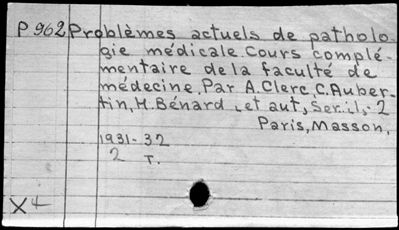 P 962 Problèmes actuels de patholo
gie médicale Cours complé-
mentaire de la faculté de
médecine, Par A. Clerc, C. Auber-
tin, H. Bénard et aut, Ser. i, - 2
Paris, Masson,
1931-32
2 T.
X 4